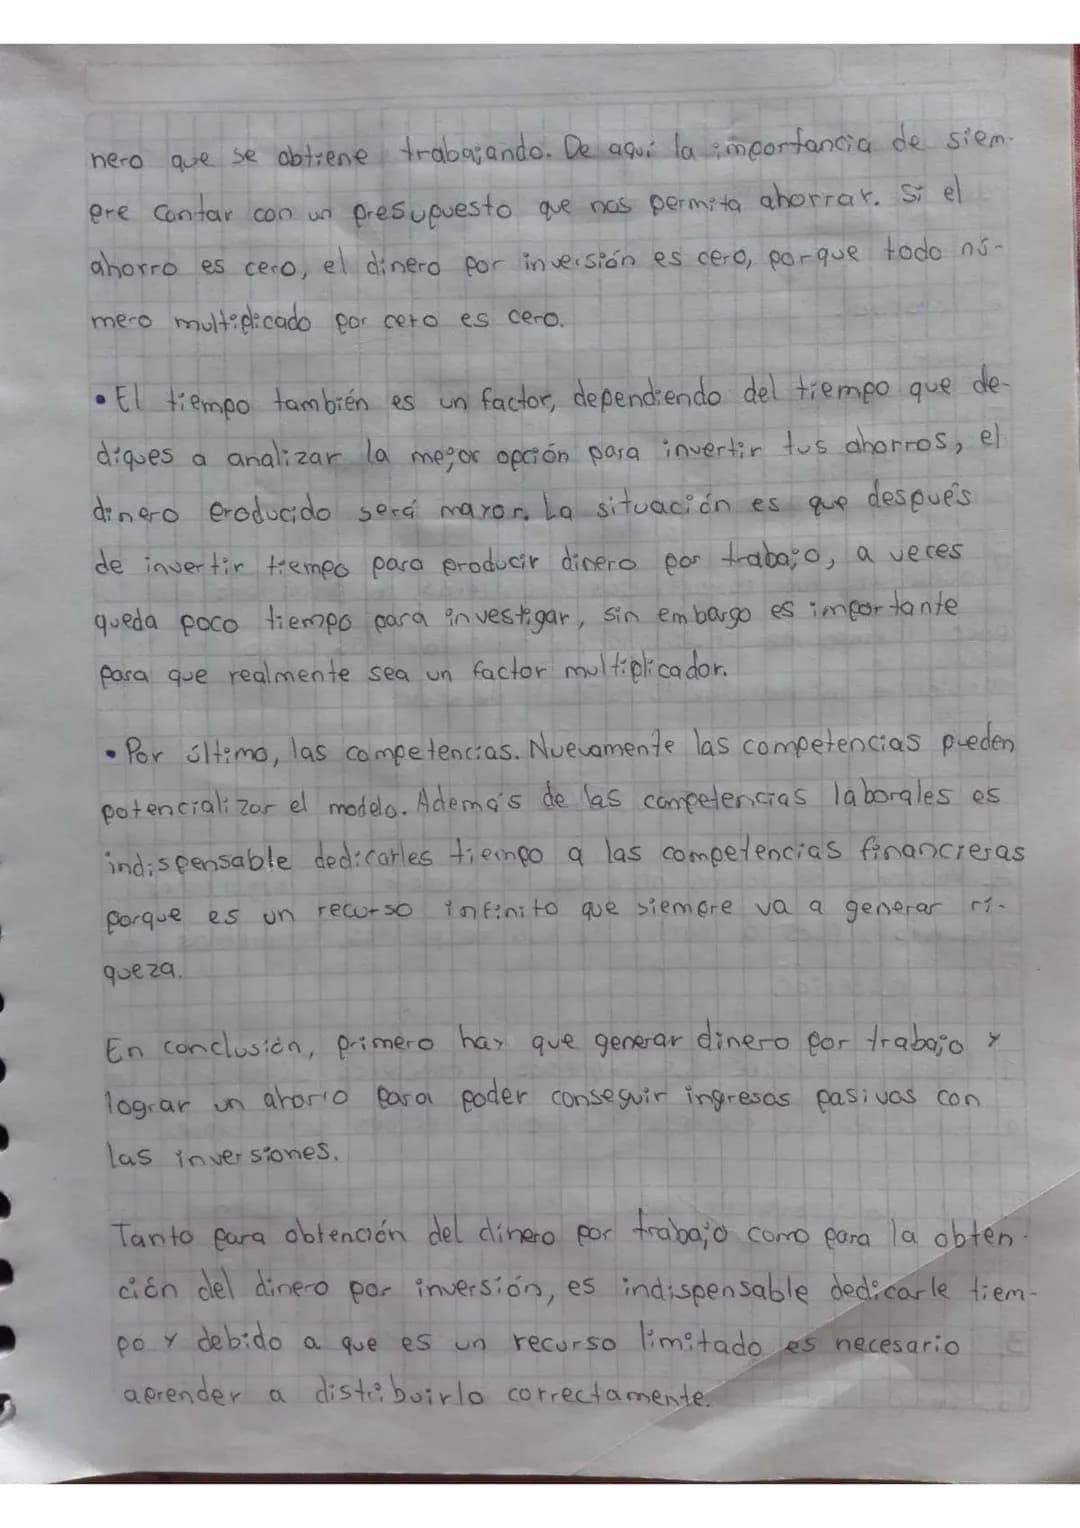 nero que se obtiene trabajando. De aquí la importancia de siem-
pre contar con un presupuesto que nos permita ahorrar. Si el
ahorro es cero, el dinero por inversión es cero, porque todo nú-
mero multiplicado por cero es cero.
• El tiempo también es un factor, dependiendo del tiempo que de-
diques a analizar la mejor opción para invertir tus ahorros, el
dinero producido será mayor. La situación es que después
de invertir tiempo para producir dinero por trabajo, a veces
queda poco tiempo para investigar, sin embargo es importante
para que realmente sea un factor multiplicador.
• Por último, las competencias. Nuevamente las competencias pueden
potencializar el modelo. Además de las competencias laborales es
indispensable dedicarles tiempo a las competencias financieras
porque es un recurso infinito que siempre va a generar ri-
queza.
En conclusión, primero hay que generar dinero por trabajo y
lograr un ahorro para poder conseguir ingresos pasivos con
las inversiones.
Tanto para obtención del dinero por trabajo como para la obten-
ción del dinero por inversión, es indispensable dedicarle tiem-
po y debido a que es un recurso limitado es necesario
aprender a distribuirlo correctamente.